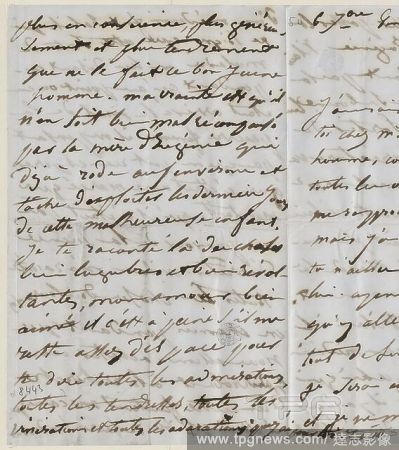 plus en conscience plus généreu-
sement et plus tendrement
que ne le fait ce bon jeune
homme. ma crainte est qu'il
n'en soit bien mal récompensé
par la mère d'Eugénie qui
déjà rode aux environs et
tâche d'exploiter les derniers jours
de cette malheureuse enfant.
Je te raconte là des choses
bien lugubres et bien révol
tantes, mon amour bien
aimé et c'est à peine s'il me
reste assez d'espace pour
te dire toutes les admirations,
toutes les tendresses, toutes les
vénérations et toutes les adorations que j'ai
8443
6
j'aurais
tu chez m
hommes, co
toutes les
me rappro
mais j'
tu n'aille
bien
qu'y alle
tout de su
je serai
et je ne m
TPG
www.tpgnews.com / 達志影像